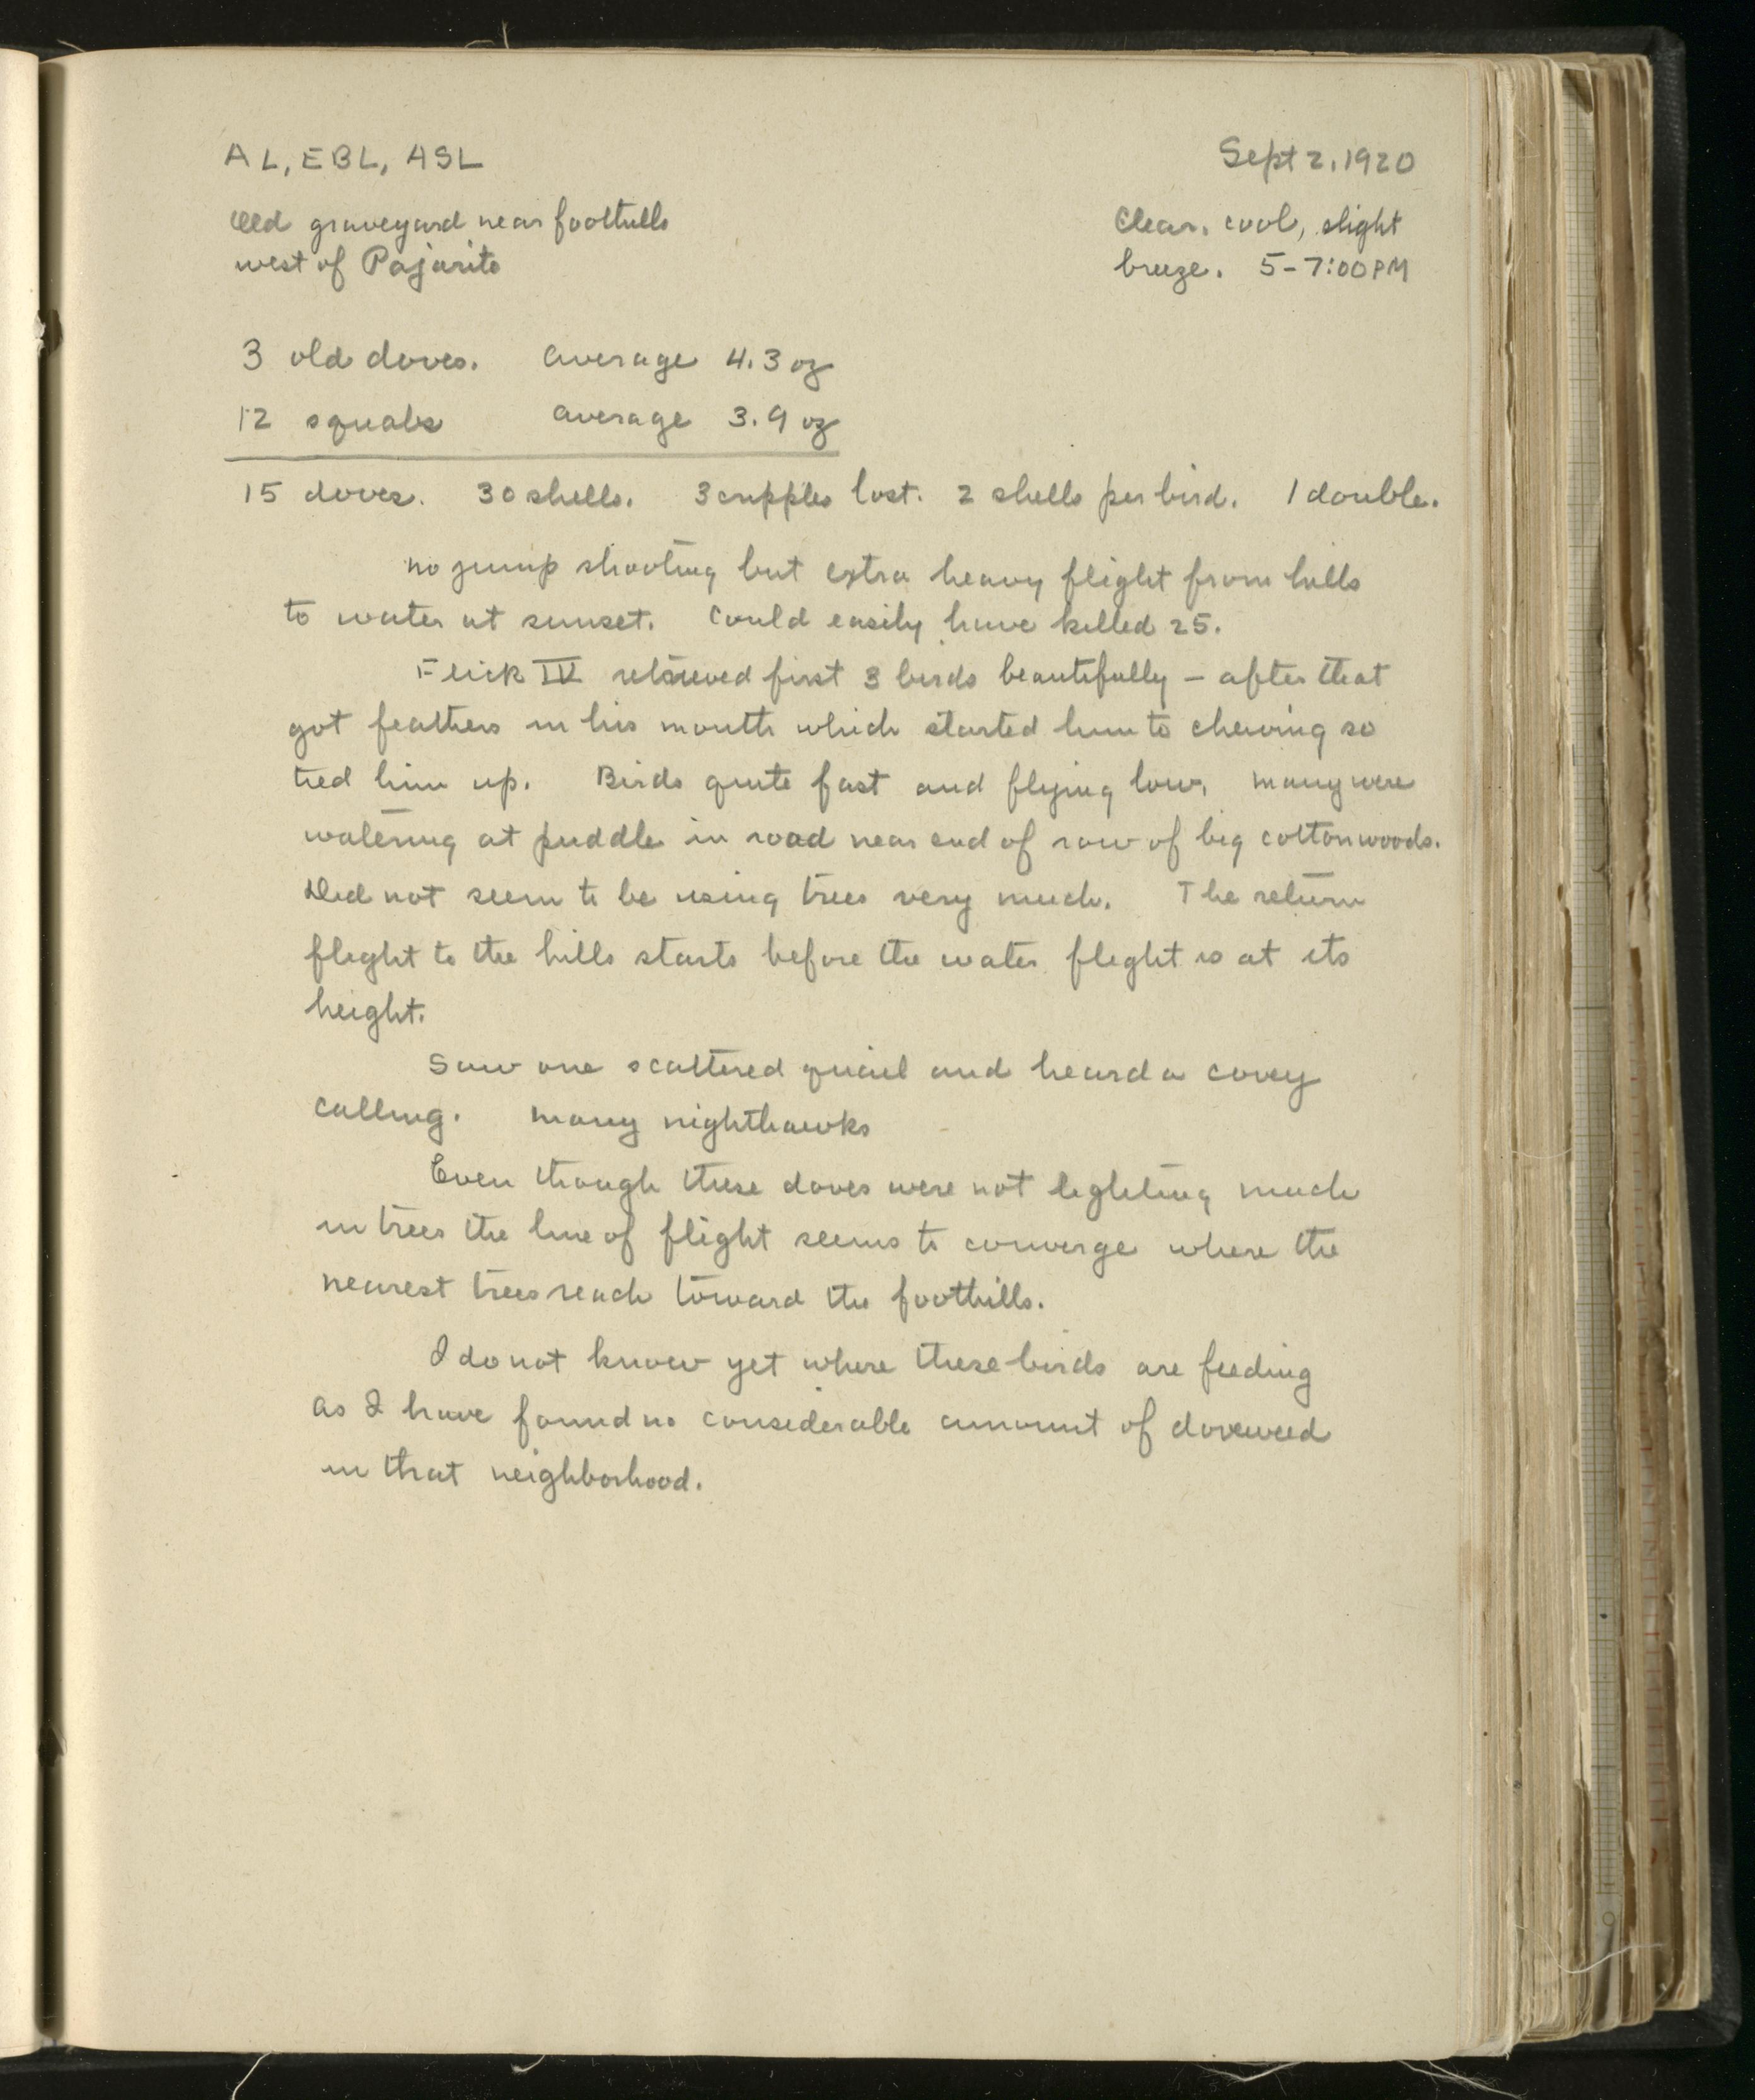 AL, EBL, ASL
Sept 2, 1920
Old graveyard near foothills
west of Pajarito
Clear, cool, slight
breeze. 5-7:00 PM
3 old doves. average 4.3 oz
12 squabs average 3.9 oz
15 doves. 30 shells. 3 cripples lost. 2 shells per bird. 1 double.
No jump shooting but extra heavy flight from hills
to water at sunset. Could easily have killed 25.
Flick IV retrieved first 3 birds beautifully – after that
got feathers in his mouth which started him to chewing so
tied him up. Birds quite fast and flying low. Many were
watering at puddle in road near end of row of big cottonwoods.
Did not seem to be using trees very much. The return
flight to the hills starts before the water flight is at its
height.
Saw one scattered quail and heard a covey
calling. Many nighthawks
Even though these doves were not lighting much
in trees the line of flight seems to converge where the
nearest trees reach toward the foothills.
I do not know yet where these birds are feeding
as I have found no considerable amount of doveweed
in that neighborhood.